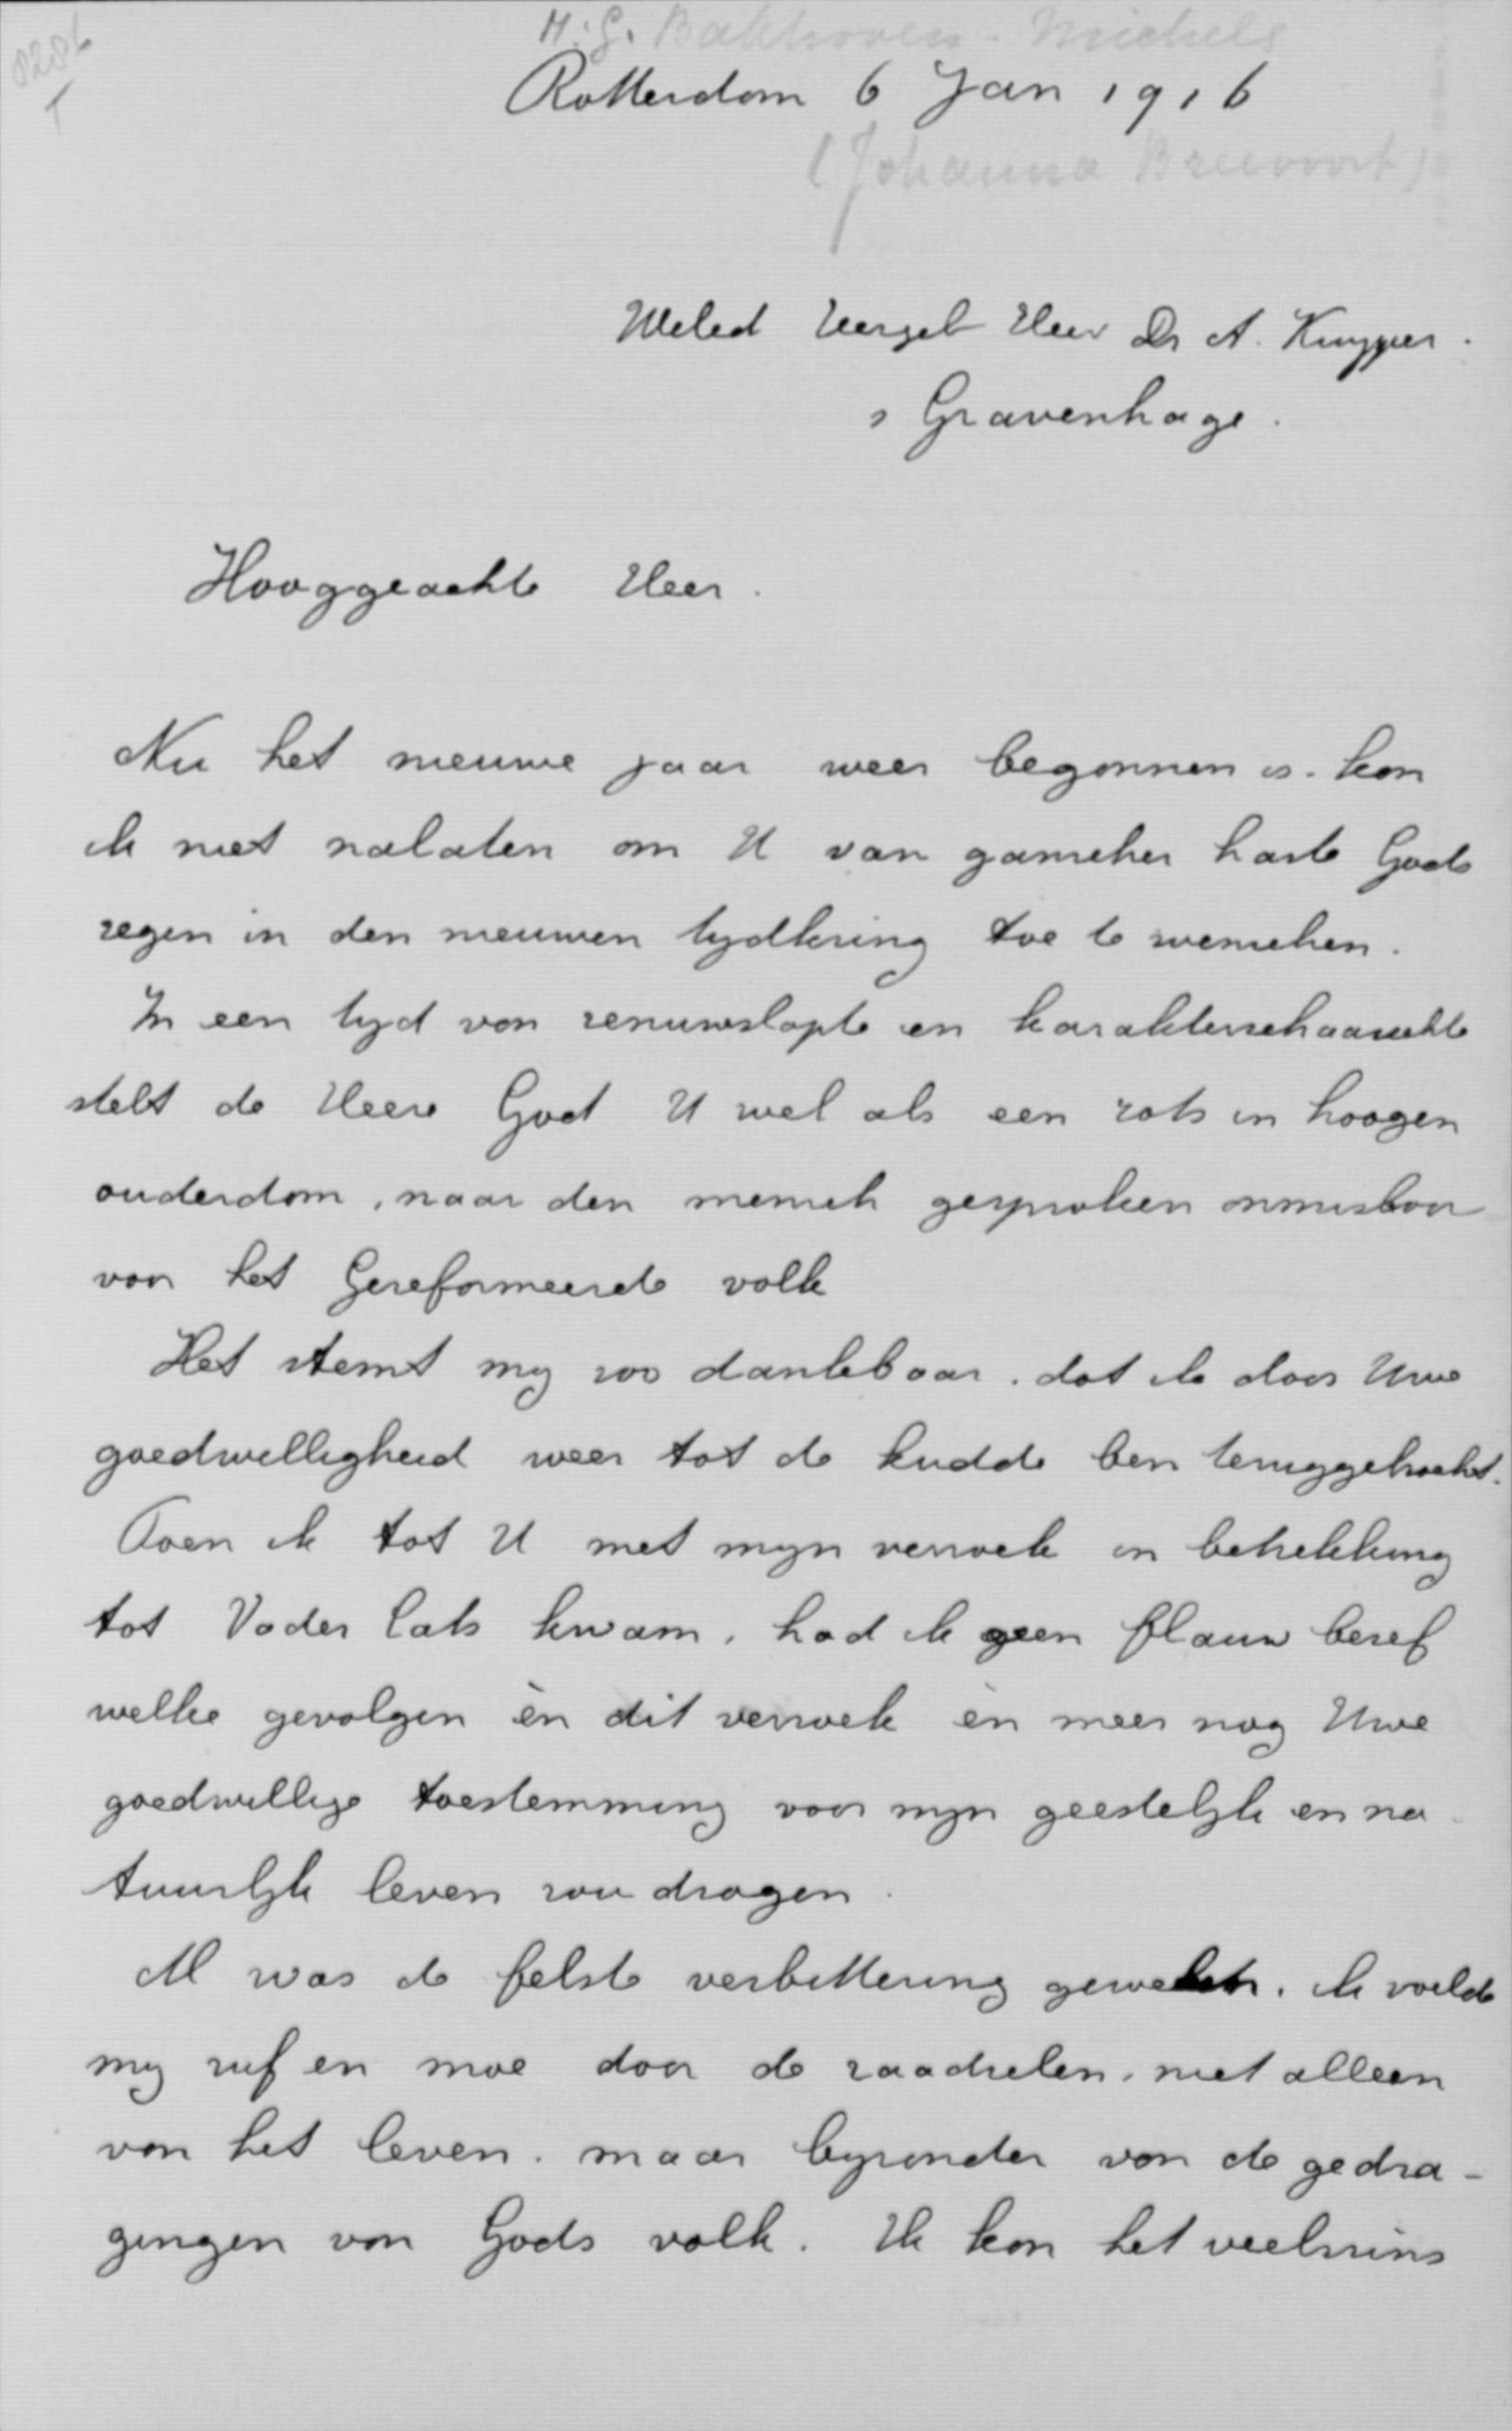 H. G. Bakhoven - Michels
Rotterdam 6 Jan 1916
(Johanna Breevoort)
Weled Zeergel Heer Dr A. Kuyper.
s Gravenhage.
Hooggeachte Heer.
Nu het nieuwe jaar weer begonnen is. kon
ik niet nalaten om U van ganscher harte Gods
zegen in den nieuwen tydkring toe te wenschen.
In een tyd van zenuwslapte en karakterschaarschte
stelt de Heere God U wel als een rots in hoogen
ouderdom, naar den mensch gesproken onmisbaar
voor het Gereformeerde volk
Het stemt my zoo dankbaar. dat ik door Uwe
goedwilligheid weer tot de kudde ben teruggebracht.
Toen ik tot U met myn verzoek in betrekking
tot Vader Cats kwam, had ik geen flauw besef
welke gevolgen èn dit verzoek èn meer nog Uwe
goedwillige toestemming voor myn geestelyk en na-
tuurlyk leven zou dragen.
Al was de felste verbittering geweken. ik voelde
my suf en moe door de raadselen, niet alleen
van het leven. maar byzonder van de gedra-
gingen van Gods volk. Ik kon het veelszins